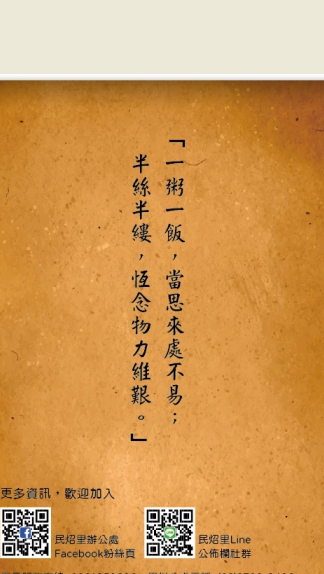 「一粥一飯，當思來處不易；
半絲半縷，恆念物力維艱。」
更多資訊，歡迎加入
民炤里辦公處
Facebook粉絲頁
民炤里Line
公佈欄社群